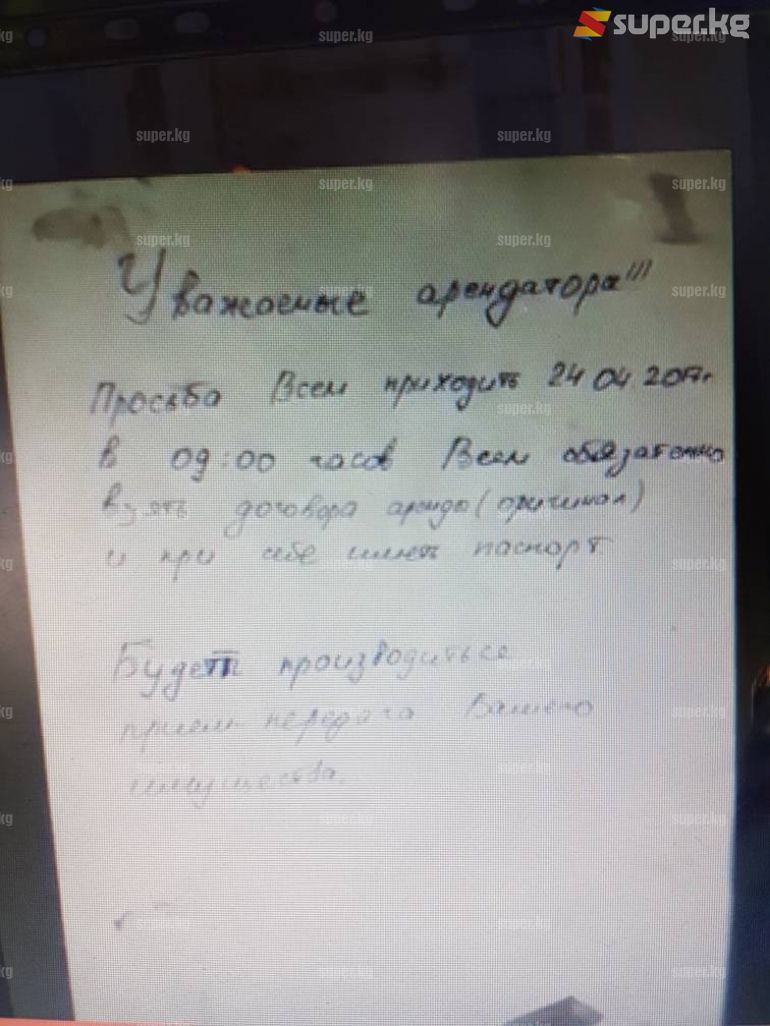 super.kg
Уважаемые арендатора!!!
Просьба Всем приходить 24 04 2017г
в 09:00 часов Всем обязательно
взять договора арендо (оригинал)
и при себе имет паспорт
Будетъ производиться
прием передача Вашего
имущества.